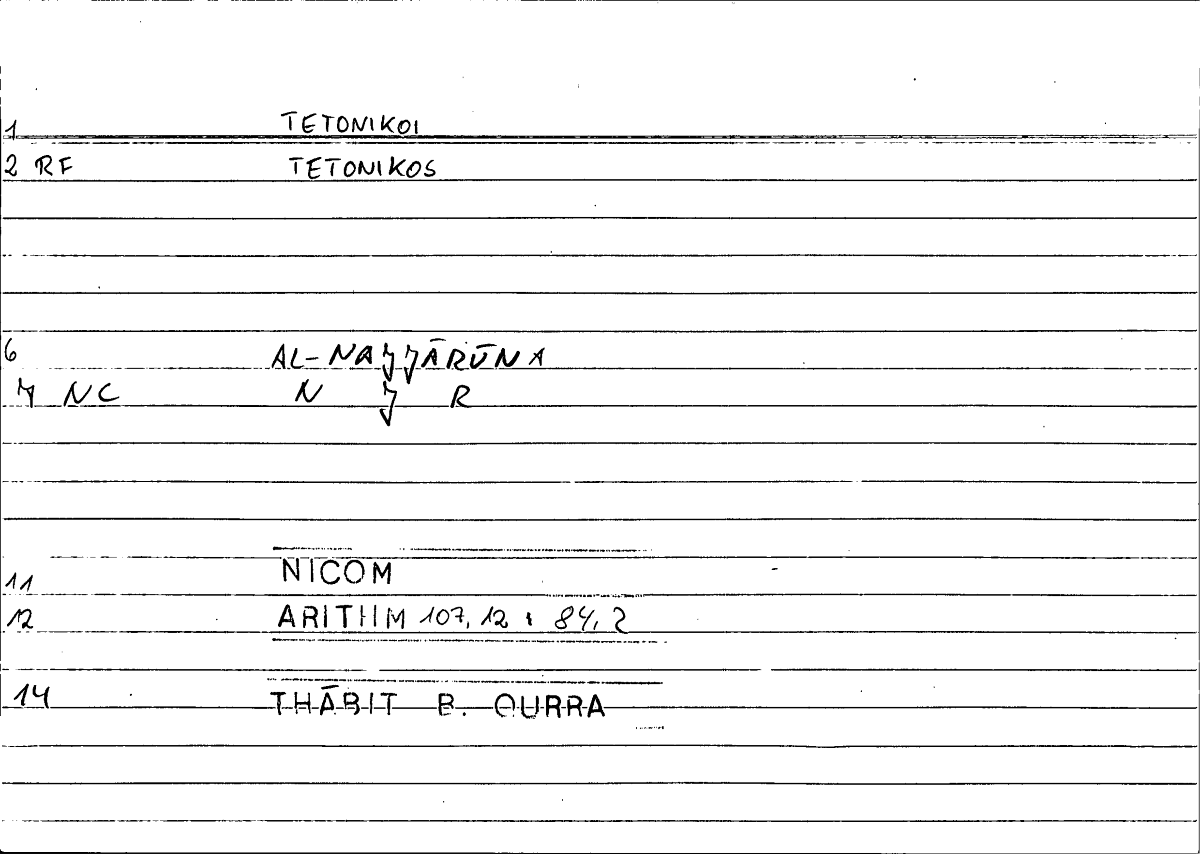 1 TETONIKOI
2 RF TETONIKOS
6 AL-NAJJĀRŪNA
7 NC N J R
11 NICOM
12 ARITHM 107,12 : 84,2
14 THĀBIT B. QURRA